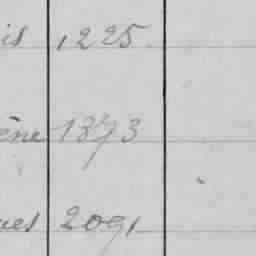 is 1225
ène 1373
ues 2091